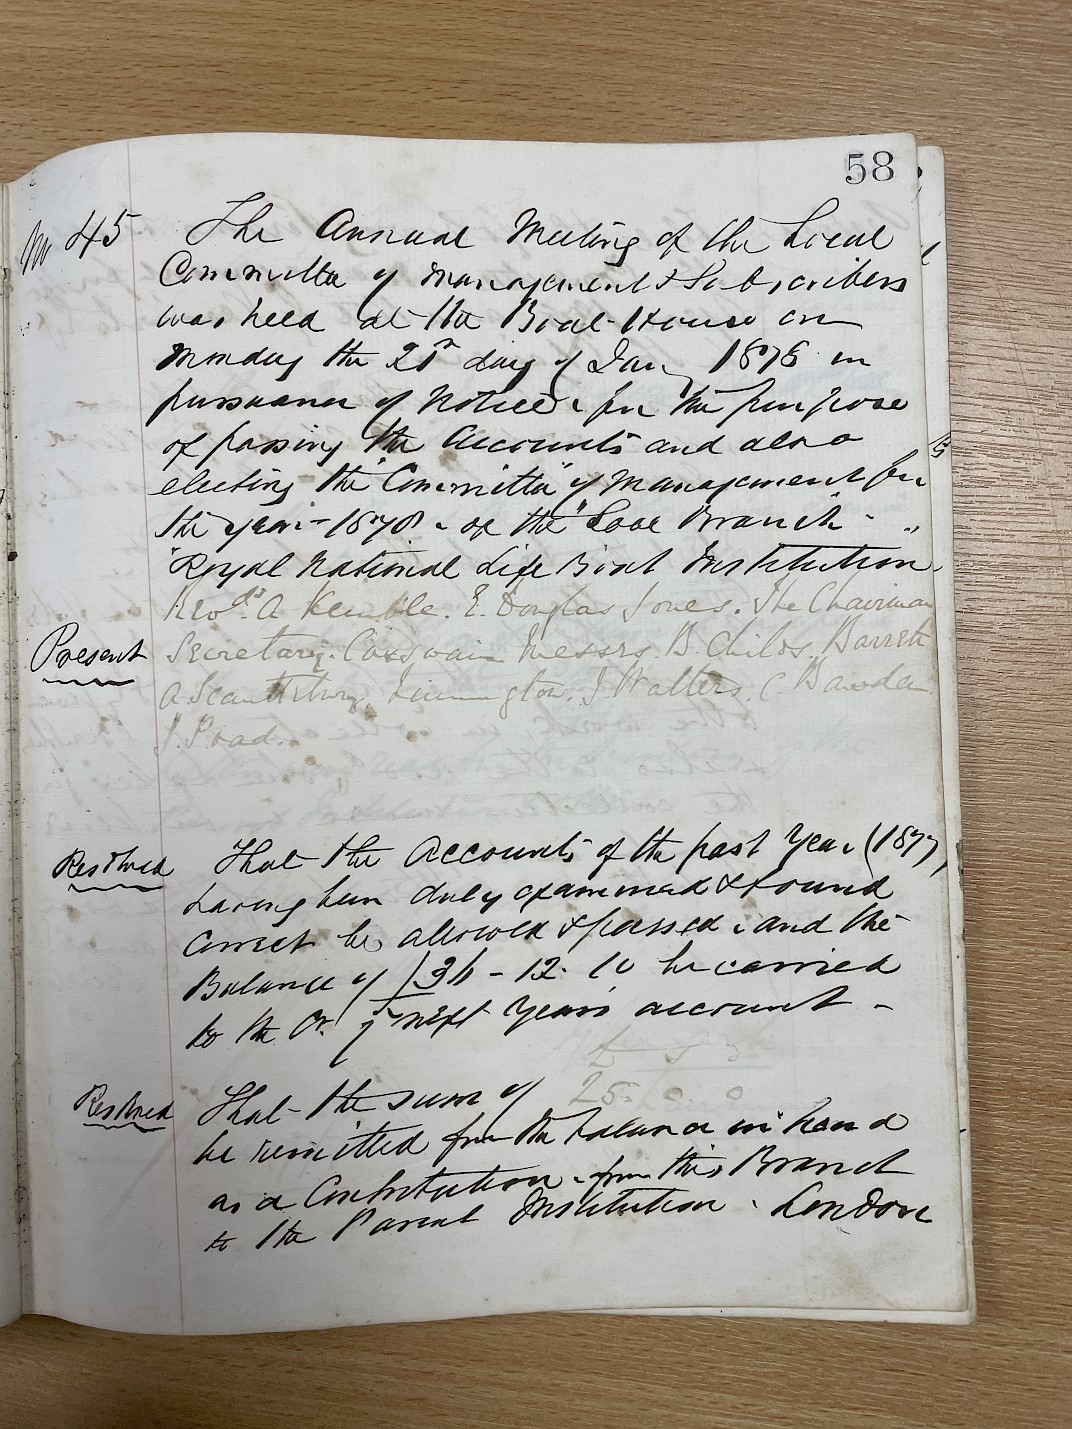 58
No 45 The Annual Meeting of the Local
Committee of Management & Subscribers
was held at the Boat-House on
Monday the 21st day of Jany 1878 in
pursuance of Notice, for the purpose
of passing the Accounts and also
electing the "Committee" of Management for
the year 1878 - of the "Looe Branch -"
"Royal National Life Boat Institution.
Revds A Kemble. E. Douglas Jones. The Chairman
Present Secretary. Coxswain Messrs B. Childs. Barrett
A Scantlebury. J Walters. C. Bawden
J. Poad.
Resolved That the Accounts of the past Year (1877)
having been duly examined & found
correct be allowed & passed, and the
Balance of £36 - 12. 10 be carried
to the Cr. of next Years account -
£ s d
Resolved That the sum of 25. 0. 0
be remitted from the balance in hand
as a Contribution - from this Branch
to the Parent Institution - London